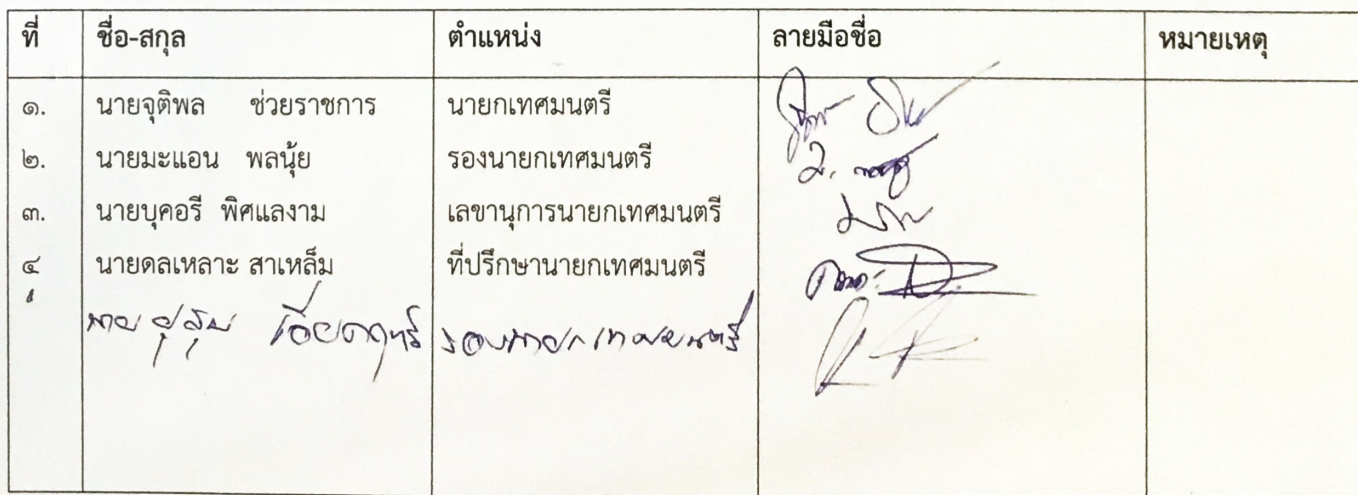 ที่ ชื่อ-สกุล ตำแหน่ง ลายมือชื่อ หมายเหตุ
๑. นายจุติพล ช่วยราชการ นายกเทศมนตรี
๒. นายมะแอน พลนุ้ย รองนายกเทศมนตรี
๓. นายบุคอรี พิศแลงาม เลขานุการนายกเทศมนตรี
๔ นายดลเหลาะ สาเหล็ม ที่ปรึกษานายกเทศมนตรี
นาย รองนายกเทศมนตรี